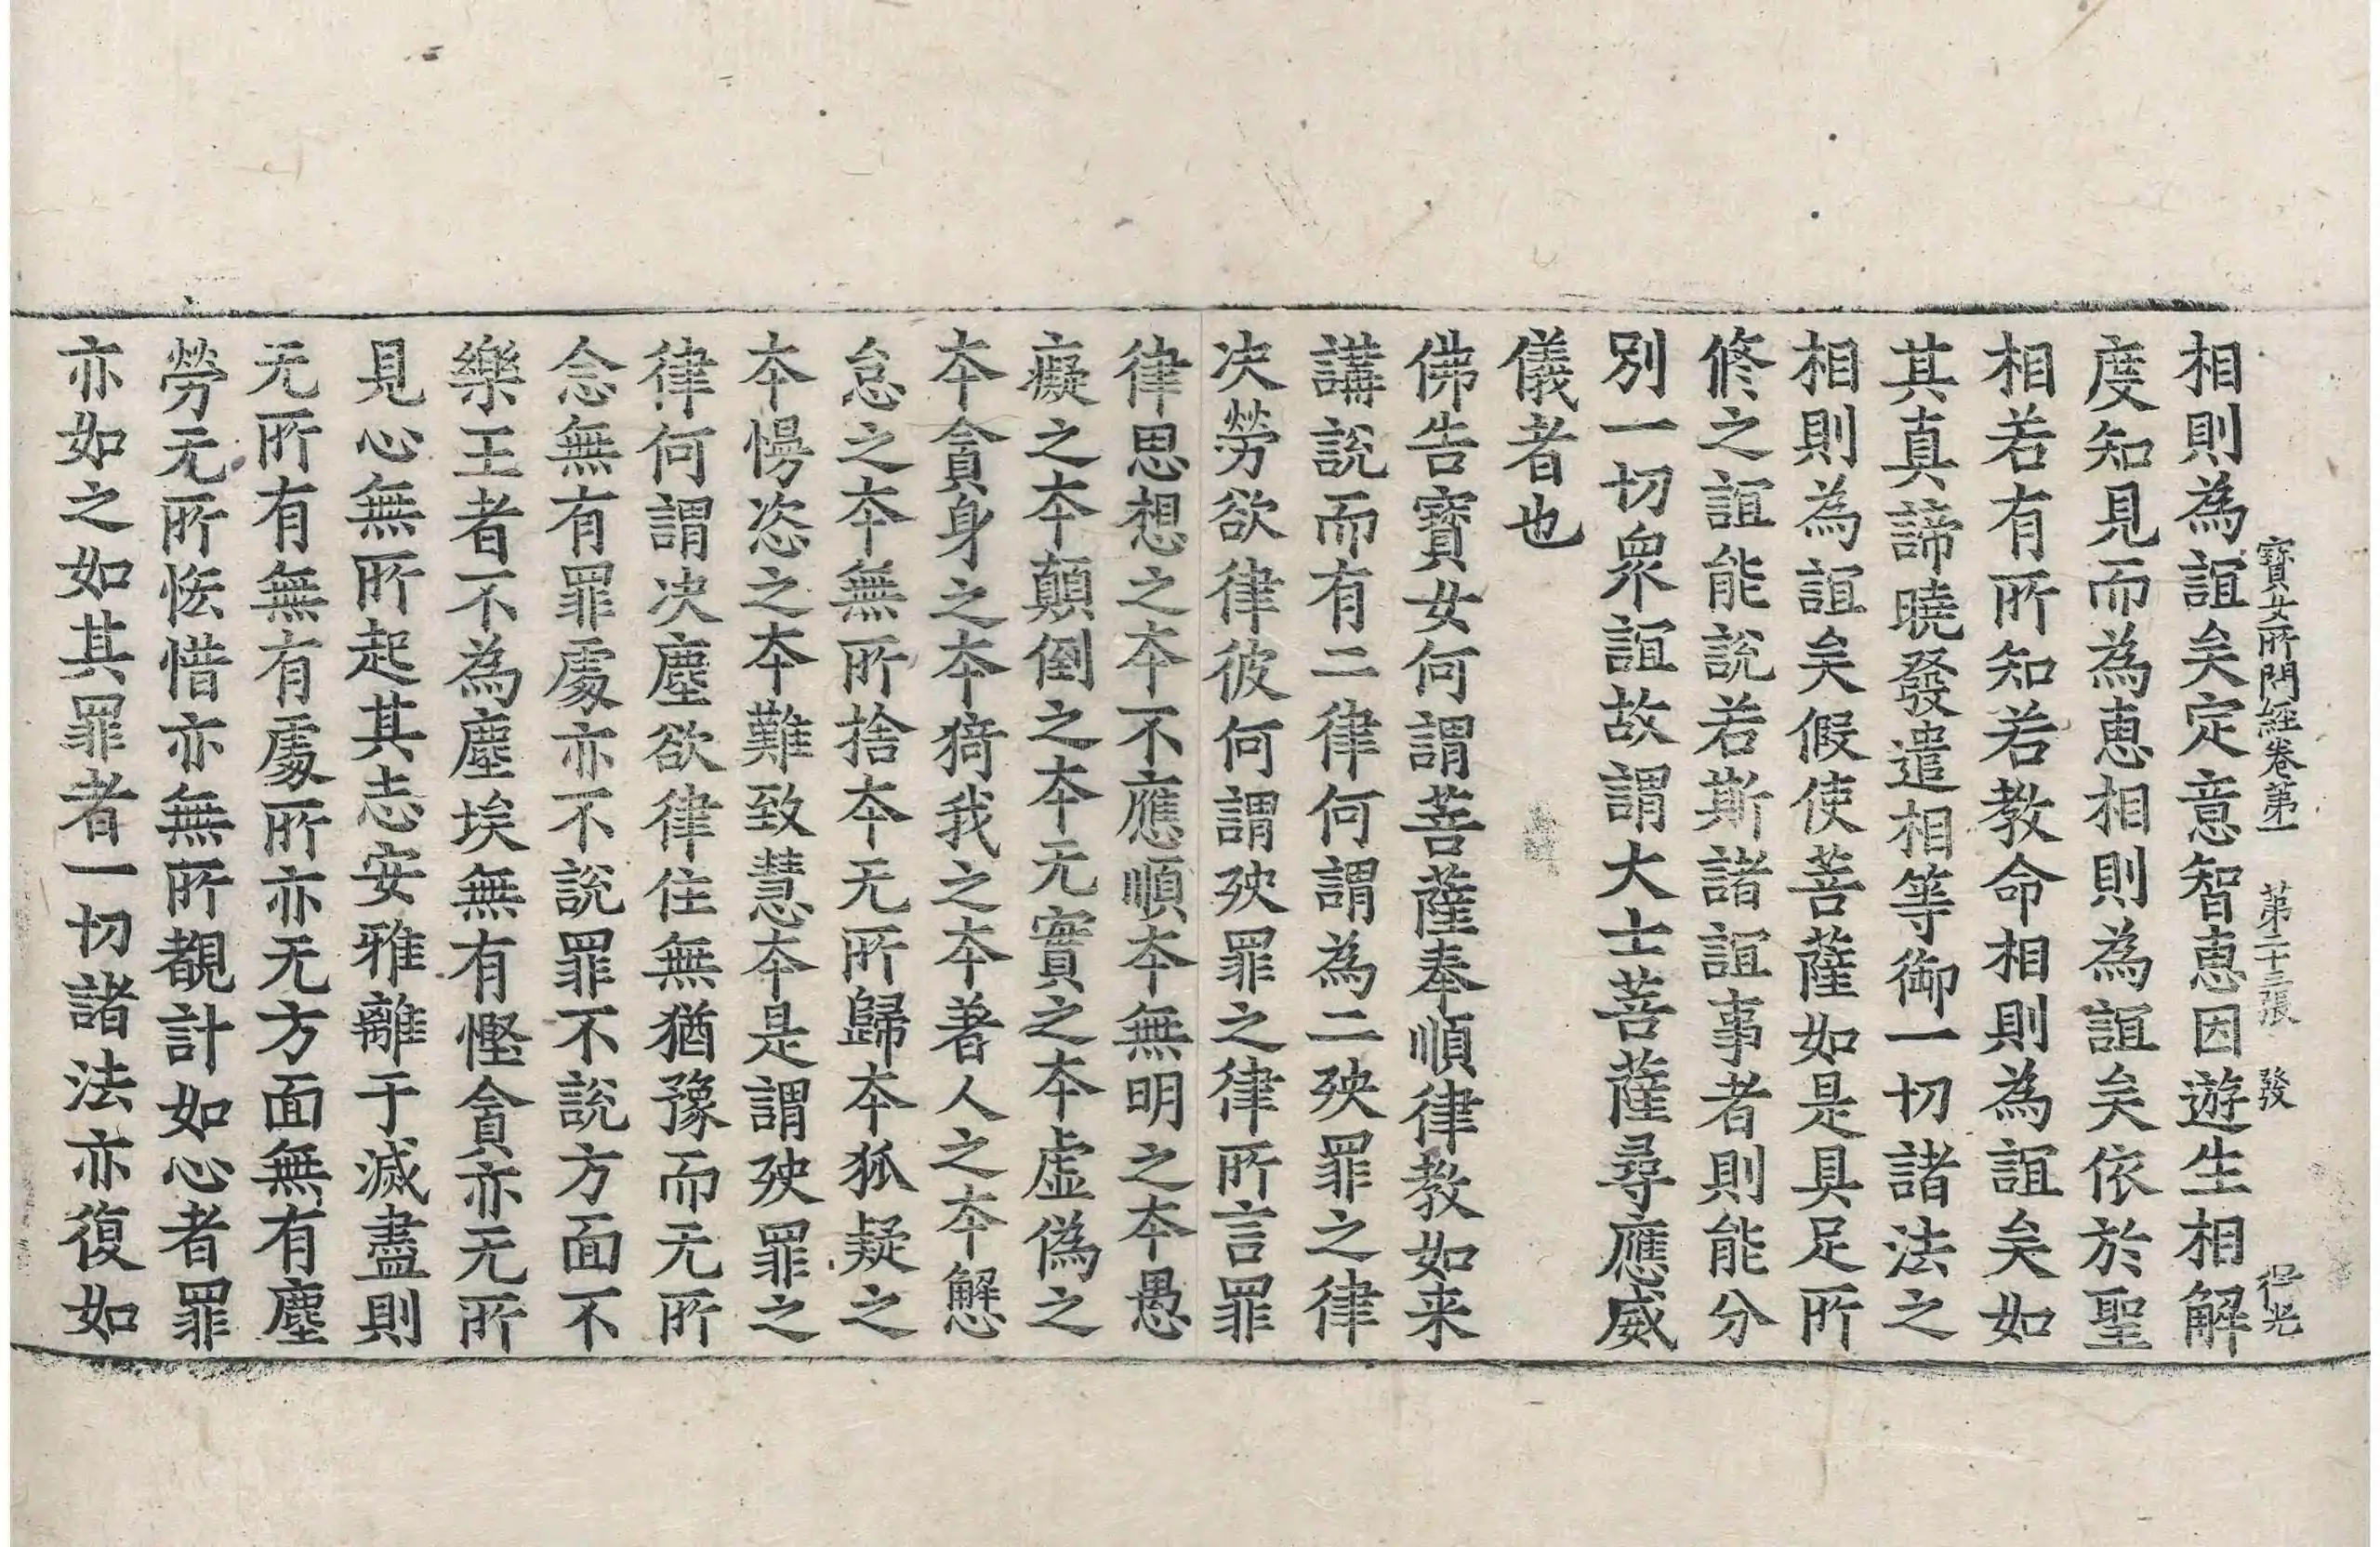 寶女所問経卷第一 第二十三張 發
相則為誼矣定意智惠因遊生相解
度知見而為惠相則為誼矣依於聖
相若有所知若教命相則為誼矣如
其真諦曉發遣相等御一切諸法之
相則為誼矣假使菩薩如是具足所
修之誼能說若斯諸誼事者則能分
別一切眾誼故謂大士菩薩尋應威
儀者也
佛告寶女何謂菩薩奉順律教如来
講說而有二律何謂為二殃罪之律
决勞欲律彼何謂殃罪之律所言罪
律思想之夲不應順夲無明之夲愚
癡之夲顛倒之夲无實之夲虛偽之
夲貪身之夲猗我之夲著人之夲懈
怠之夲無所捨夲无所歸夲狐疑之
夲慢恣之夲難致慧夲是謂殃罪之
律何謂决塵欲律住無猶豫而无所
念無有罪處亦不說罪不說方面不
樂王者不為塵埃無有慳貪亦无所
見心無所起其志安雅離于滅盡則
无所有無有處所亦无方面無有塵
勞无所恡惜亦無所覩計如心者罪
亦如之如其罪者一切諸法亦復如